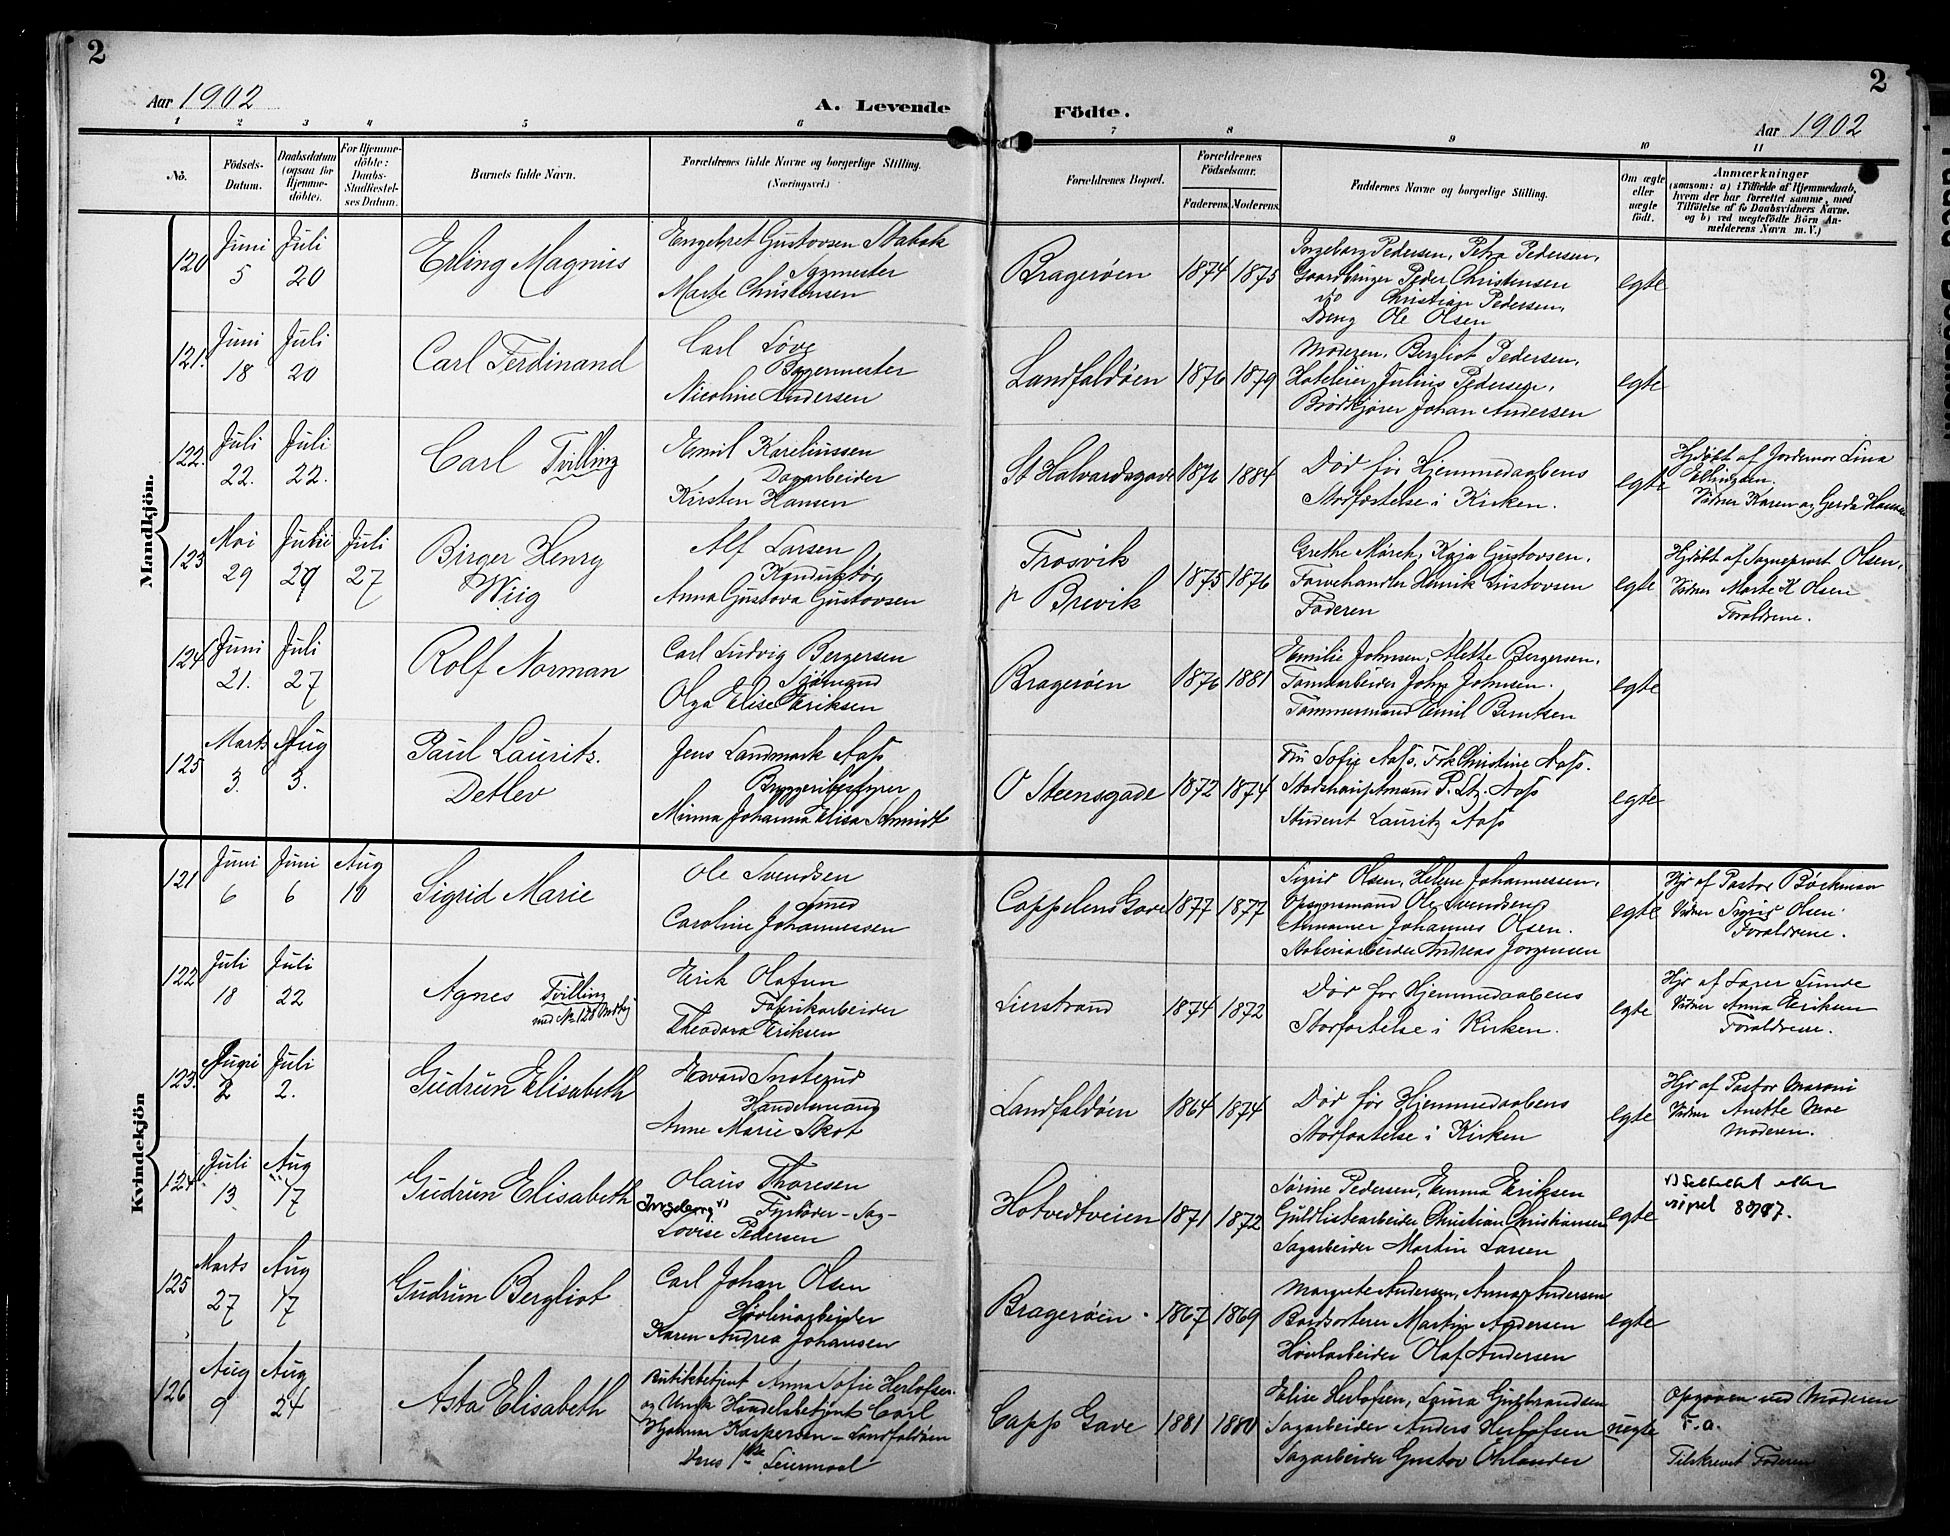 2
2
Aar 1902
A. Levende
Födte.
Aar 1902
1 2 3 4 5 6 7 8 9 10 11
No.
Födsels-
Datum.
Daabsdatum
(ogsaa for
Hjemme-
döbte).
For Hjemme-
döbte:
Daabs-
Stadfæstel-
ses Datum.
Barnets fulde Navn.
Forældrenes fulde Navne og borgerlige Stilling.
(Næringsvei.)
Forældrenes Bopæl.
Forældrenes
Födselsaar.
Faderens. Moderens.
Faddernes Navne og borgerlige Stilling.
Om ægte
eller
uægte
födt.
Anmærkninger
(saasom: a) i Tilfælde af Hjemmedaab,
hvem der har forrettet samme, med
Tilföielse af to Daabsvidners Navne,
og b) ved uægtefödte Börn An-
melderens Navn m. V.)
Mandkjön.
120
Juni
5
Juli
20
Erling Magnus
Engebret Gustovsen Stabæk
Sagmester
Marte Christensen
Bragerøen
1874 1875
Ingeborg Pedersen, Petra Pedersen,
Gaardbruger Peder Christensen
do Christian Pedersen,
Ole Olsen
egte
121.
Juni
18
Juli
20
Carl Ferdinand
Carl Løve
Bagermester
Nicoline Andersen
Landfaldøen
1876 1879
Moderen, Bergliot Pedersen,
Hoteleier Julius Pedersen,
Brødkjører Johan Andersen
egte
122.
Juli
22.
Juli
22.
Carl Tvilling
Emil Karelinssen
Dagarbeider
Kirsten Hansen
St Halvardsgade
1876 1884
Død før Hjemmedaabens
Stadfæstelse i Kirken.
egte
Hjdøbt af Jordemor Lina
Ellingsen.
Vidner Karen og Gerda Hansen
123
Mai
29
Juni
29
Juli
27
Birger Henry
Wiig
Alf Larsen
Konduktør
Anna Gustova Gustovsen
Trosvik
pr Brevik
1875 1876
Grethe Mørch, Kaja Gustovsen,
Farvehandler Henrik Gustovsen
Faderen
egte
Hjdøbt af Sogneprest Olsen,
Vidner Marte K Olsen
Forældrene.
124
Juni
21.
Juli
27
Rolf Norman
Carl Ludvig Bergersen
Sjømand
Olga Elise Eriksen
Bragerøen
1876 1881
Emilie Johnsen, Alette Bergersen,
Tomtearbeider John Johnsen.
Tømmermand Emil Berntsen
egte
125
Marts
3.
Aug
3.
Paul Lauritz.
Detlev
Jens Landmark Aass
Bryggeribestyrer
Minna Johanna Elisa Schmidt
O Steensgade
1872 1874
Fru Sofie Aass, Frk Christine Aass.
Stadshauptmand P. Ltz. Aass
Student Lauritz Aass
egte
Kvindekjön
121
Juni
6
Juni
6
Aug
10
Sigrid Marie
Ole Svendsen
Smed
Caroline Johannessen
Cappelens Gade
1877 1877
Sigrid Olsen, Helene Johannessen,
Opsynsmand Ole Svendsen
Johannes Olsen.
Andreas Jørgensen
egte
Hjd af Pastor Bøckman
Vidner Sigrid Olsen.
Forældrene.
122
Juli
18
Juli
22
Agnes Tvilling
Erik Olafsen
Fabrikarbeider
Theodora Eriksen
Lierstrand
1874 1872
Død før Hjemmedaabens
Stadfæstelse i Kirken.
egte
Hjd af Farer Lunde
Vidner Anna Eriksen
Forældrene.
123.
Juni
2
Juli
2.
Gudrun Elisabeth
Edvard Snoterud
Handelsmand
Anne Marie Skot
Landfaldøen
1864 1874
Død før Hjemmedaabens
Stadfæstelse i Kirken
egte
Hjd af Pastor Maroni
Vidner Anette Moe
Moderen.
124
Juli
13.
Aug
17
Gudrun Elisabeth
Ingeborg 1)
Olaus Thoresen
Fyrbøder - Sag-
Lovise Pedersen
Hotvedtveien
1871 1872
Sørine Pedersen, Emma Eriksen
Guldlistearbeider Christian Christiansen
Sagarbeider Martin Larsen
egte
125
Marts
27
Aug
17
Gudrun Bergliot
Carl Johan Olsen
Høvleriarbeider
Karen Andrea Johansen
Bragerøen.
1867 1869
Margrete Andersen, Anna Andersen
Bordsorterer Martin Andersen
Høvlarbeider Olaf Andersen
egte
126
Aug
9
Aug
24
Asta Elisabeth
Butikbetjent Anna Sofie Herlofsen
og Ungk Handelsbetjent Carl
Hjalmar Kaspersen - Landfaldøen
1ste Leiermaal
Capp Gade
1881 1880
Elise Herlofsen, Laura Gulbrandsen
Sagarbeider Anders Herlofsen
Sagarbeider Gustav Øhlander
uegte
Opgaven ved Moderen
Tilskrevet Faderen